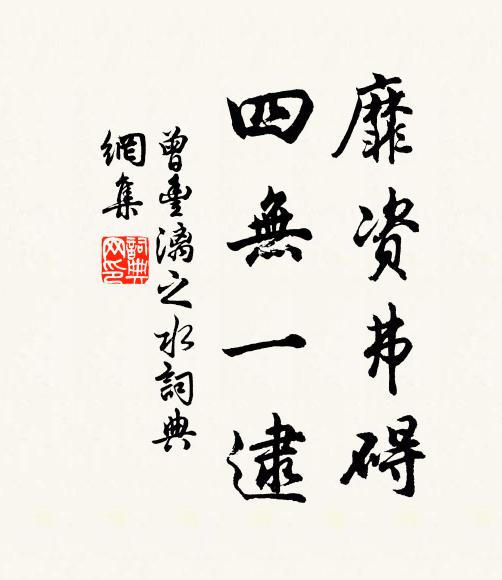 靡资弗碍
四無一逮
曾豊漓之水詞典
網集
詞典
网印